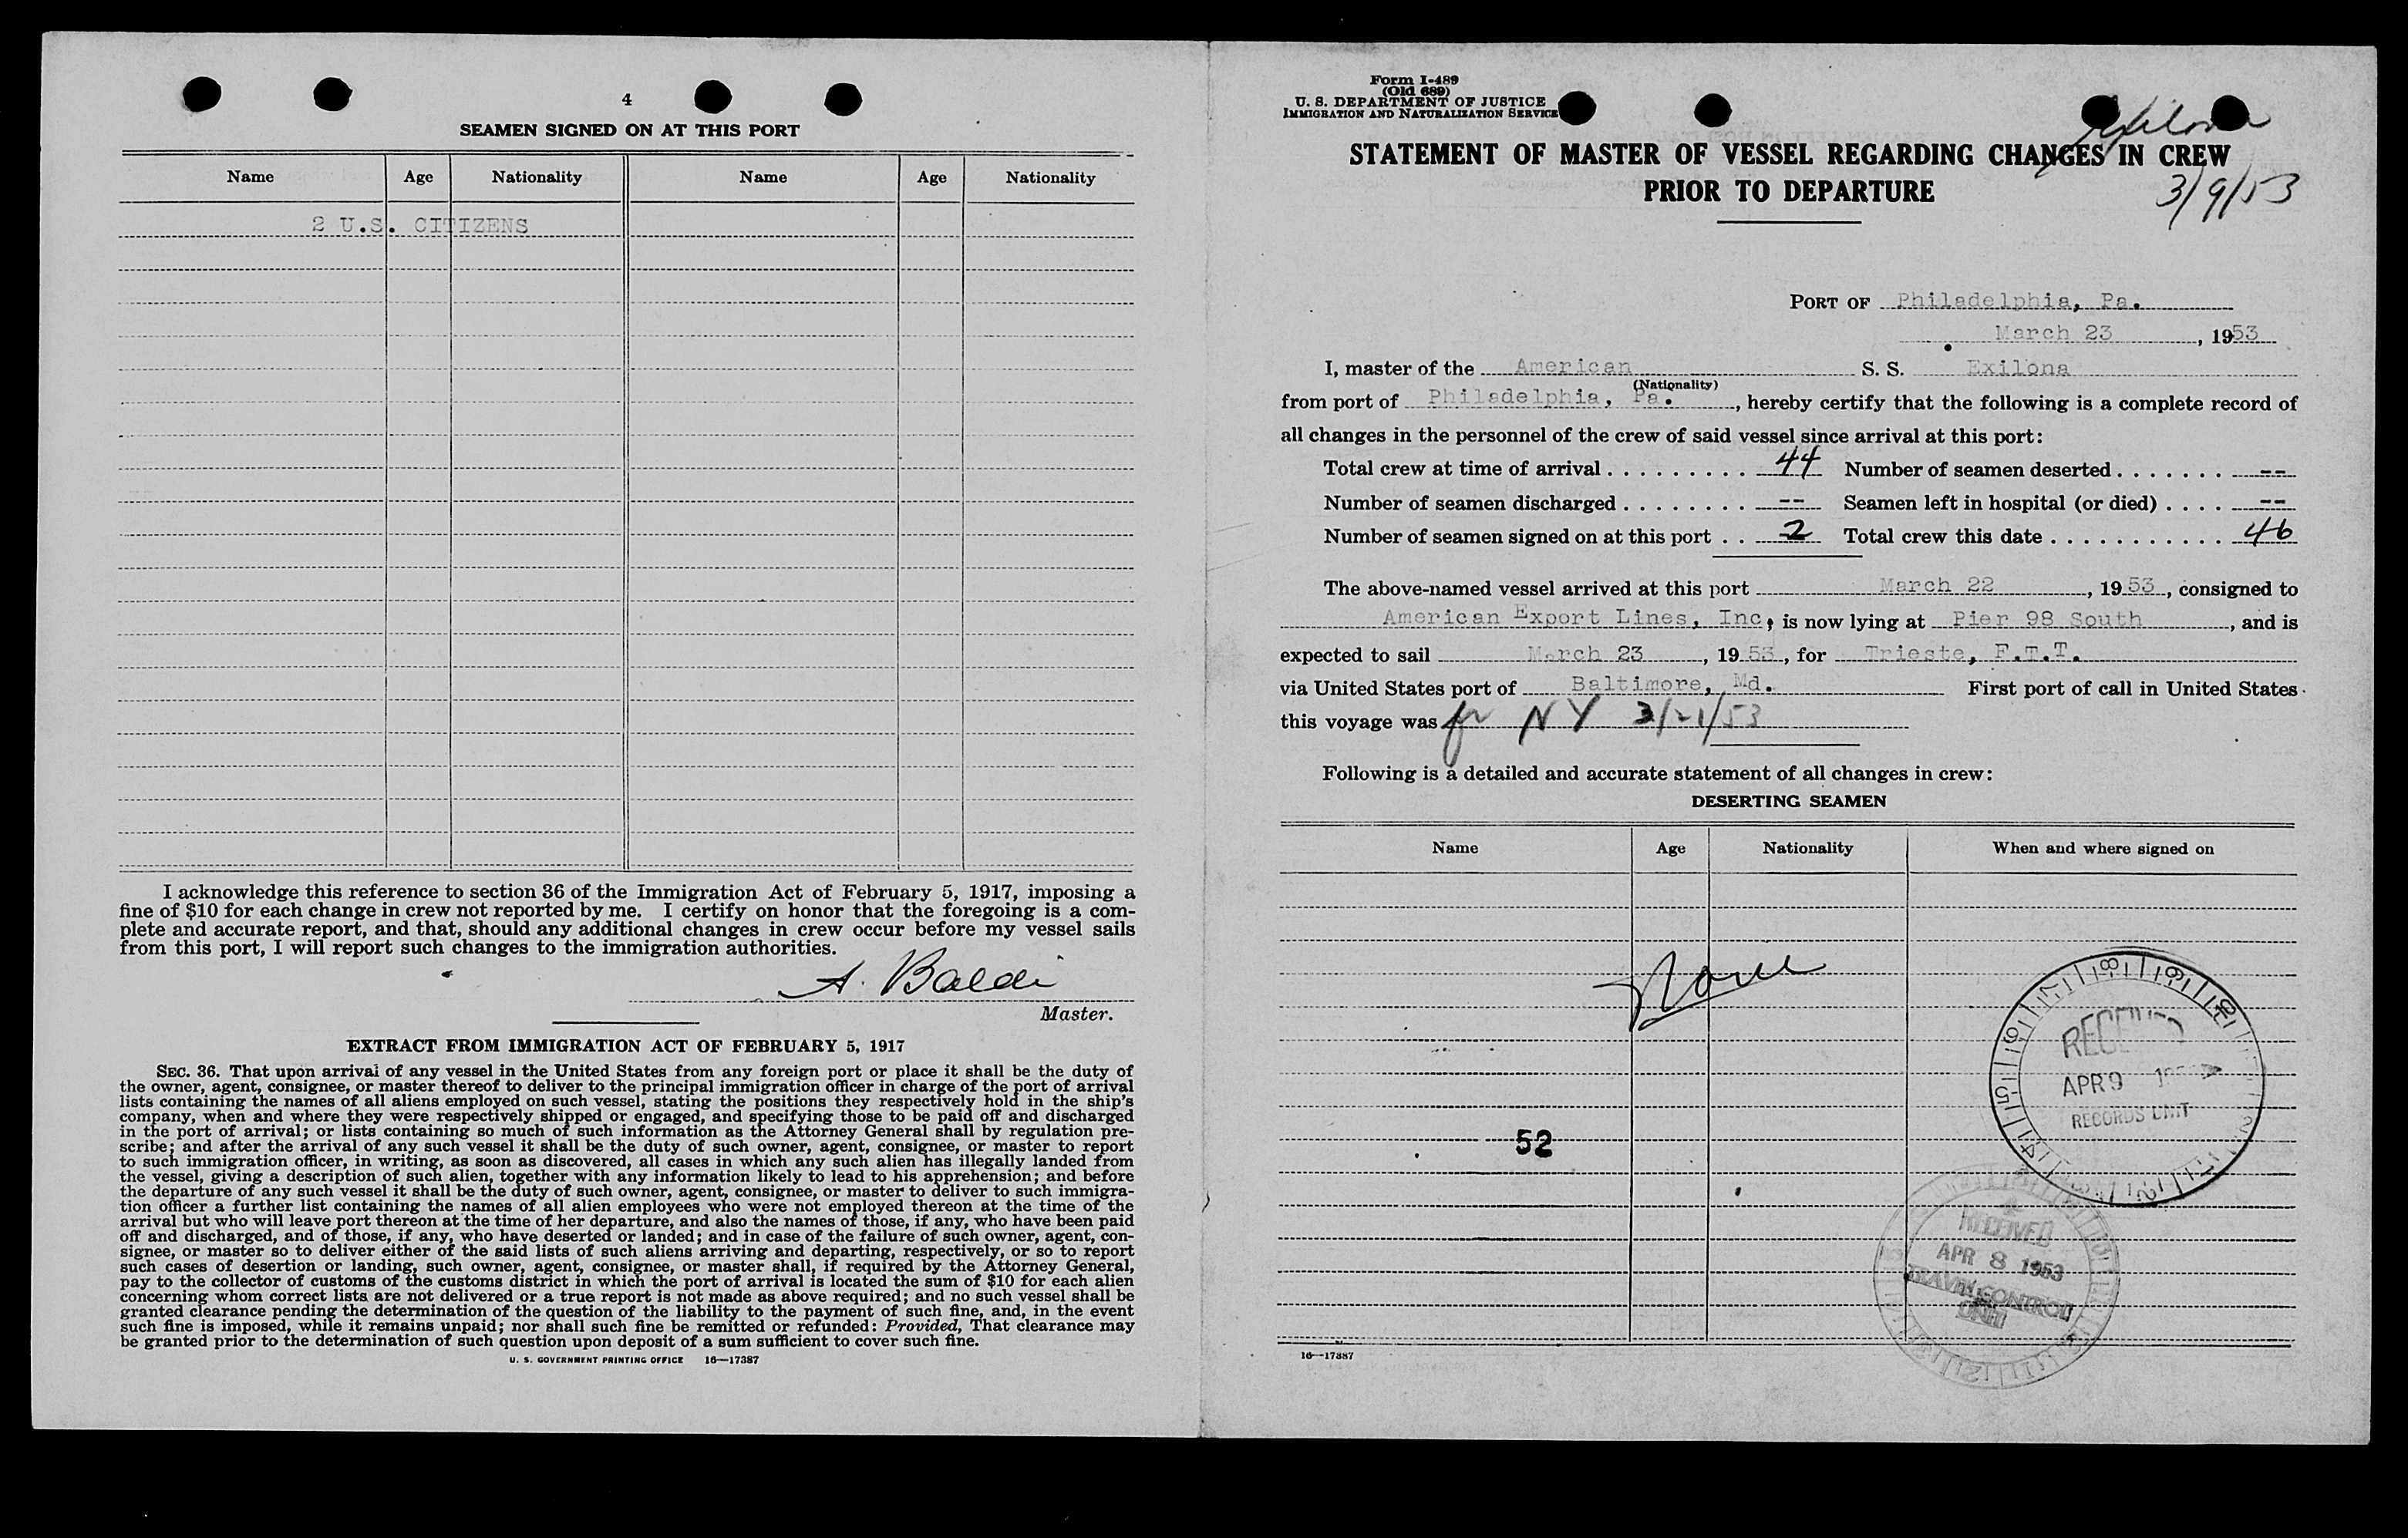 4
SEAMEN SIGNED ON AT THIS PORT
Name Age Nationality Name Age Nationality
2 U.S. CITIZENS
I acknowledge this reference to section 36 of the Immigration Act of February 5, 1917, imposing a
fine of $10 for each change in crew not reported by me. I certify on honor that the foregoing is a com-
plete and accurate report, and that, should any additional changes in crew occur before my vessel sails
from this port, I will report such changes to the immigration authorities.
A. Baldi
Master.
EXTRACT FROM IMMIGRATION ACT OF FEBRUARY 5, 1917
SEC. 36. That upon arrival of any vessel in the United States from any foreign port or place it shall be the duty of
the owner, agent, consignee, or master thereof to deliver to the principal immigration officer in charge of the port of arrival
lists containing the names of all aliens employed on such vessel, stating the positions they respectively hold in the ship's
company, when and where they were respectively shipped or engaged, and specifying those to be paid off and discharged
in the port of arrival; or lists containing so much of such information as the Attorney General shall by regulation pre-
scribe; and after the arrival of any such vessel it shall be the duty of such owner, agent, consignee, or master to report
to such immigration officer, in writing, as soon as discovered, all cases in which any such alien has illegally landed from
the vessel, giving a description of such alien, together with any information likely to lead to his apprehension; and before
the departure of any such vessel it shall be the duty of such owner, agent, consignee, or master to deliver to such immigra-
tion officer a further list containing the names of all alien employees who were not employed thereon at the time of the
arrival but who will leave port thereon at the time of her departure, and also the names of those, if any, who have been paid
off and discharged, and of those, if any, who have deserted or landed; and in case of the failure of such owner, agent, con-
signee, or master so to deliver either of the said lists of such aliens arriving and departing, respectively, or so to report
such cases of desertion or landing, such owner, agent, consignee, or master shall, if required by the Attorney General,
pay to the collector of customs of the customs district in which the port of arrival is located the sum of $10 for each alien
concerning whom correct lists are not delivered or a true report is not made as above required; and no such vessel shall be
granted clearance pending the determination of the question of the liability to the payment of such fine, and, in the event
such fine is imposed, while it remains unpaid; nor shall such fine be remitted or refunded: Provided, That clearance may
be granted prior to the determination of such question upon deposit of a sum sufficient to cover such fine.
U. S. GOVERNMENT PRINTING OFFICE 16—17387
Form I-489
(Old 689)
U. S. DEPARTMENT OF JUSTICE
IMMIGRATION AND NATURALIZATION SERVICE
Exilona
STATEMENT OF MASTER OF VESSEL REGARDING CHANGES IN CREW
PRIOR TO DEPARTURE
3/9/53
PORT OF Philadelphia, Pa.
March 23, 1953
I, master of the American S. S. Exilona
(Nationality)
from port of Philadelphia, Pa., hereby certify that the following is a complete record of
all changes in the personnel of the crew of said vessel since arrival at this port:
Total crew at time of arrival . . . . . . . . . 44 Number of seamen deserted . . . . . . . --
Number of seamen discharged . . . . . . . . -- Seamen left in hospital (or died) . . . . --
Number of seamen signed on at this port . . 2 Total crew this date . . . . . . . . . . . 46
The above-named vessel arrived at this port March 22, 1953, consigned to
American Export Lines, Inc, is now lying at Pier 98 South, and is
expected to sail March 23, 1953, for Trieste, F.T.T.
via United States port of Baltimore, Md. First port of call in United States
this voyage was fr NY 3/21/53
Following is a detailed and accurate statement of all changes in crew:
DESERTING SEAMEN
Name Age Nationality When and where signed on
None
RECEIVED
APR 9
RECORDS UNIT
52
RECEIVED
APR 8 1953
TRAVEL CONTROL
UNIT
16—17387